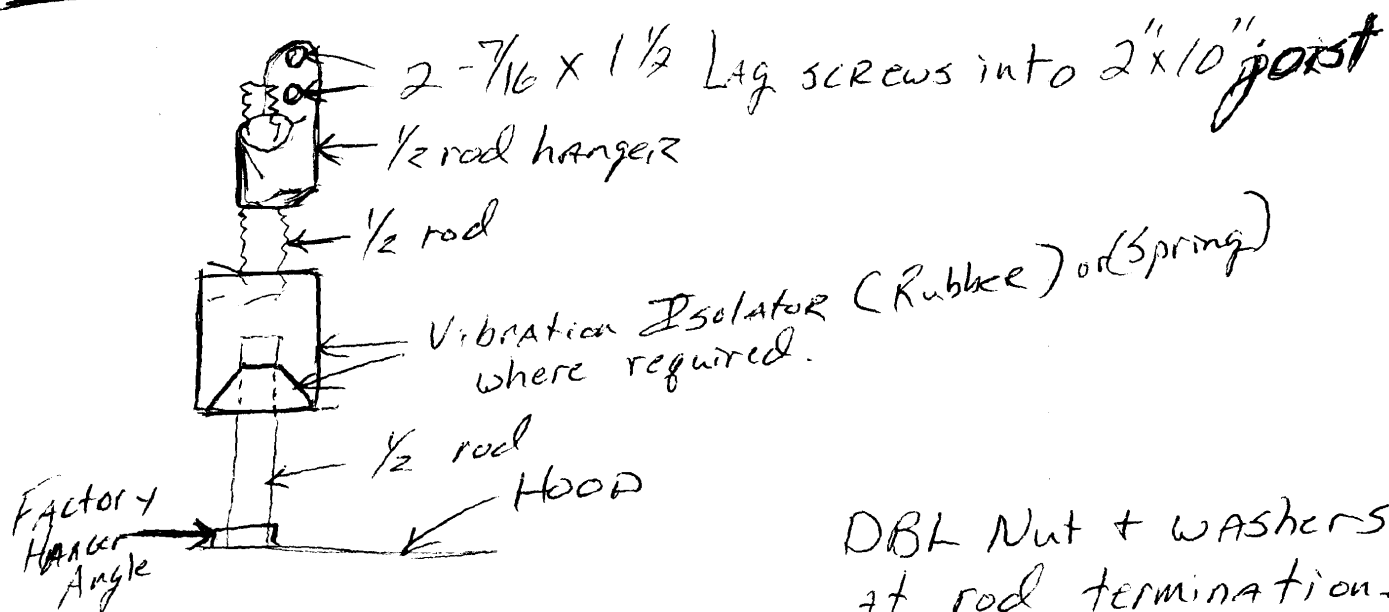 2 - 7/16 x 1 1/2 Lag screws into 2"x10" joist
1/2 rod hanger
1/2 rod
Vibration Isolator (Rubber) or (Spring)
where required.
1/2 rod
HOOD
Factory
Hanger
Angle
DBL Nut + washers
at rod termination.